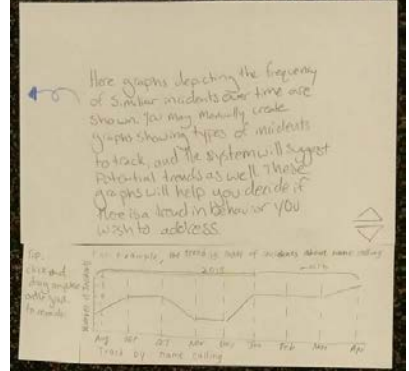 Here graphs depicting the frequency
of similar incidents over time are
shown. You may manually create
graphs showing types of incidents
to track, and the system will suggest
potential trends as well. These
graphs will help you decide if
there is a trend in behavior you
wish to address.
Tip:
click and
drag
to
example, the trend is of incidents about name calling
2015
Number of Incidents
Aug Sept Oct Nov Dec Jan Feb Mar Apr
Track by name calling